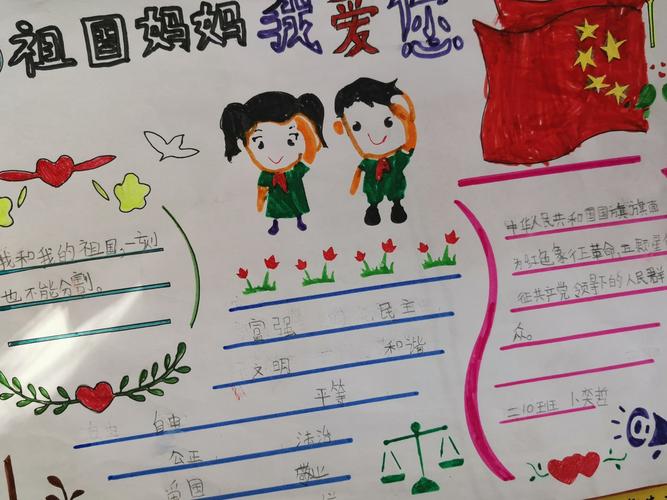 祖国妈妈我爱您
我和我的祖国,一刻
也不能分割。
富强 民主
文明 和谐
自由 平等
公正 法治
爱国 敬业
中华人民共和国国旗旗面
为红色象征革命,五颗星
征共产党领导下的人民群
众。
二10班